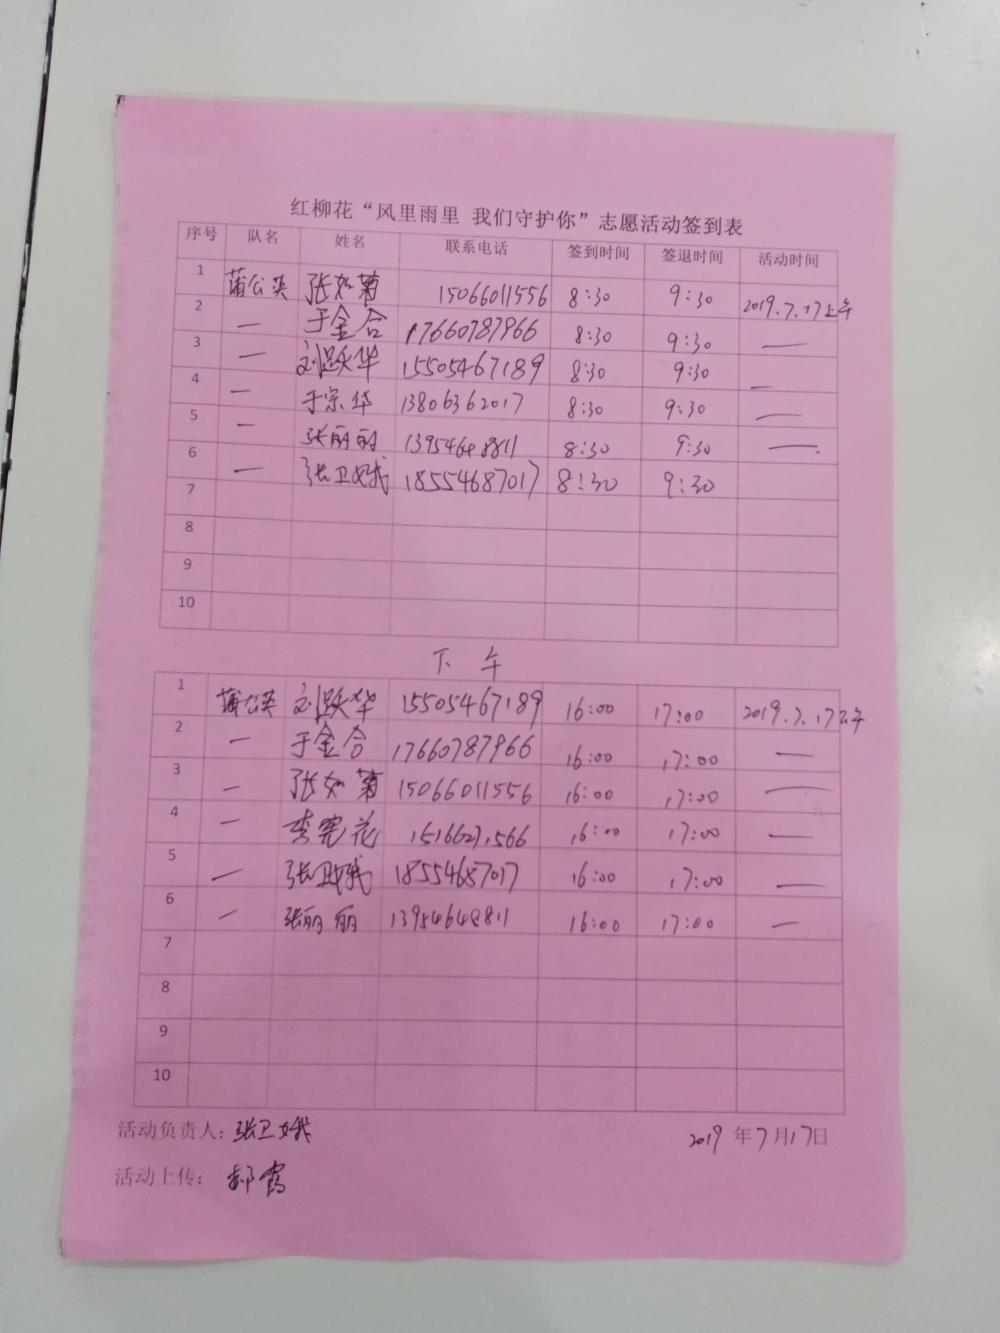 红柳花“风里雨里 我们守护你”志愿活动签到表
序号 队名 姓名 联系电话 签到时间 签退时间 活动时间
1 蒲公英 张如菊 15066011556 8:30 9:30 2019.7.17上午
2 — 于金合 17660787966 8:30 9:30 —
3 — 刘跃华 15505467189 8:30 9:30 —
4 — 于宗华 13806362017 8:30 9:30 —
5 — 张丽丽 13954648811 8:30 9:30 —
6 — 张卫娥 18554687017 8:30 9:30
7
8
9
10
下午
1 蒲公英 刘跃华 15505467189 16:00 17:00 2019.7.17下午
2 — 于金合 17660787966 16:00 17:00 —
3 — 张如菊 15066011556 16:00 17:00 —
4 — 李宪花 16:00 17:00 —
5 — 张卫娥 18554687017 16:00 17:00 —
6 — 张丽丽 13954648811 16:00 17:00 —
7
8
9
10
活动负责人：张卫娥 2019年7月17日
活动上传：郝霞